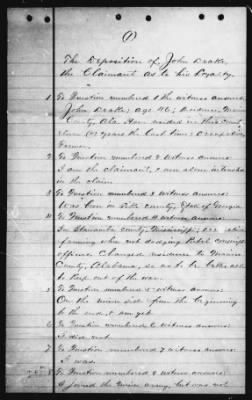 (1)
The Deposition of John Deake,
the Claimant as to his Loyalty.
1 To Question numbered 1 the witness answered,
John Deake; age 46; Residence Marion
County, Ala. Have resided in this County
eleven (11) years the last time; Occupation
Farmer.
2 To Question numbered 2 witness answers
I am the claimant, & am alone interested
in the claim.
3 To Question numbered 3 witness answers:
Was born in Pike county, State of Georgia
4 To Question numbered 4 witness answers:
In Itawamba county, Mississippi;
farming when not dodging Rebel conscript
officers. Changed residence to Marion
County, Alabama, so as to be better able
to keep out of the war.
5 To Question numbered 5 witness answers:
On the union side from the beginning
to the end, & am yet.
6 To Question numbered 6 witness answers:
I did not.
7 To Question numbered 7 witness answers:
I was.
8 To Question numbered 8 witness answers:
I joined the union army, but was not